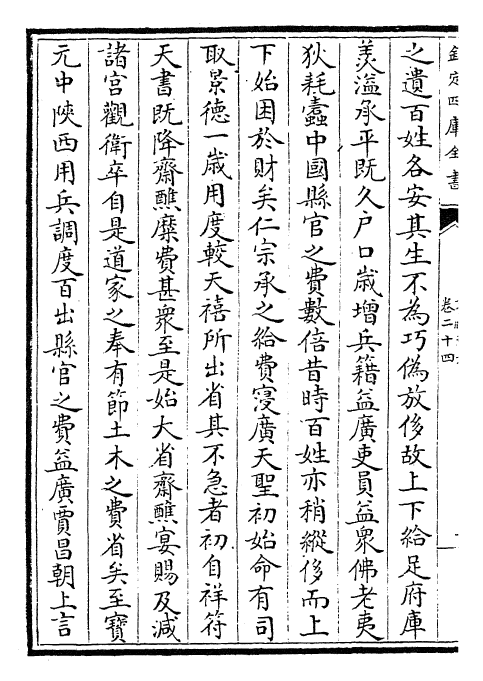 欽定四庫全書
卷二十四
之遺百姓各安其生不為巧偽放侈故上下給足府庫
羨溢承平既久户口歳增兵籍益廣吏員益衆佛老夷
狄耗蠧中國縣官之費數倍昔時百姓亦稍縱侈而上
下始困於財矣仁宗承之給費寖廣天聖初始命有司
取景徳一歳用度較天禧所出省其不急者初自祥符
天書既降齋醮糜費甚衆至是始大省齋醮宴賜及減
諸宮觀衛卒自是道家之奉有節土木之費省矣至寶
元中陜西用兵調度百出縣官之費益廣賈昌朝上言